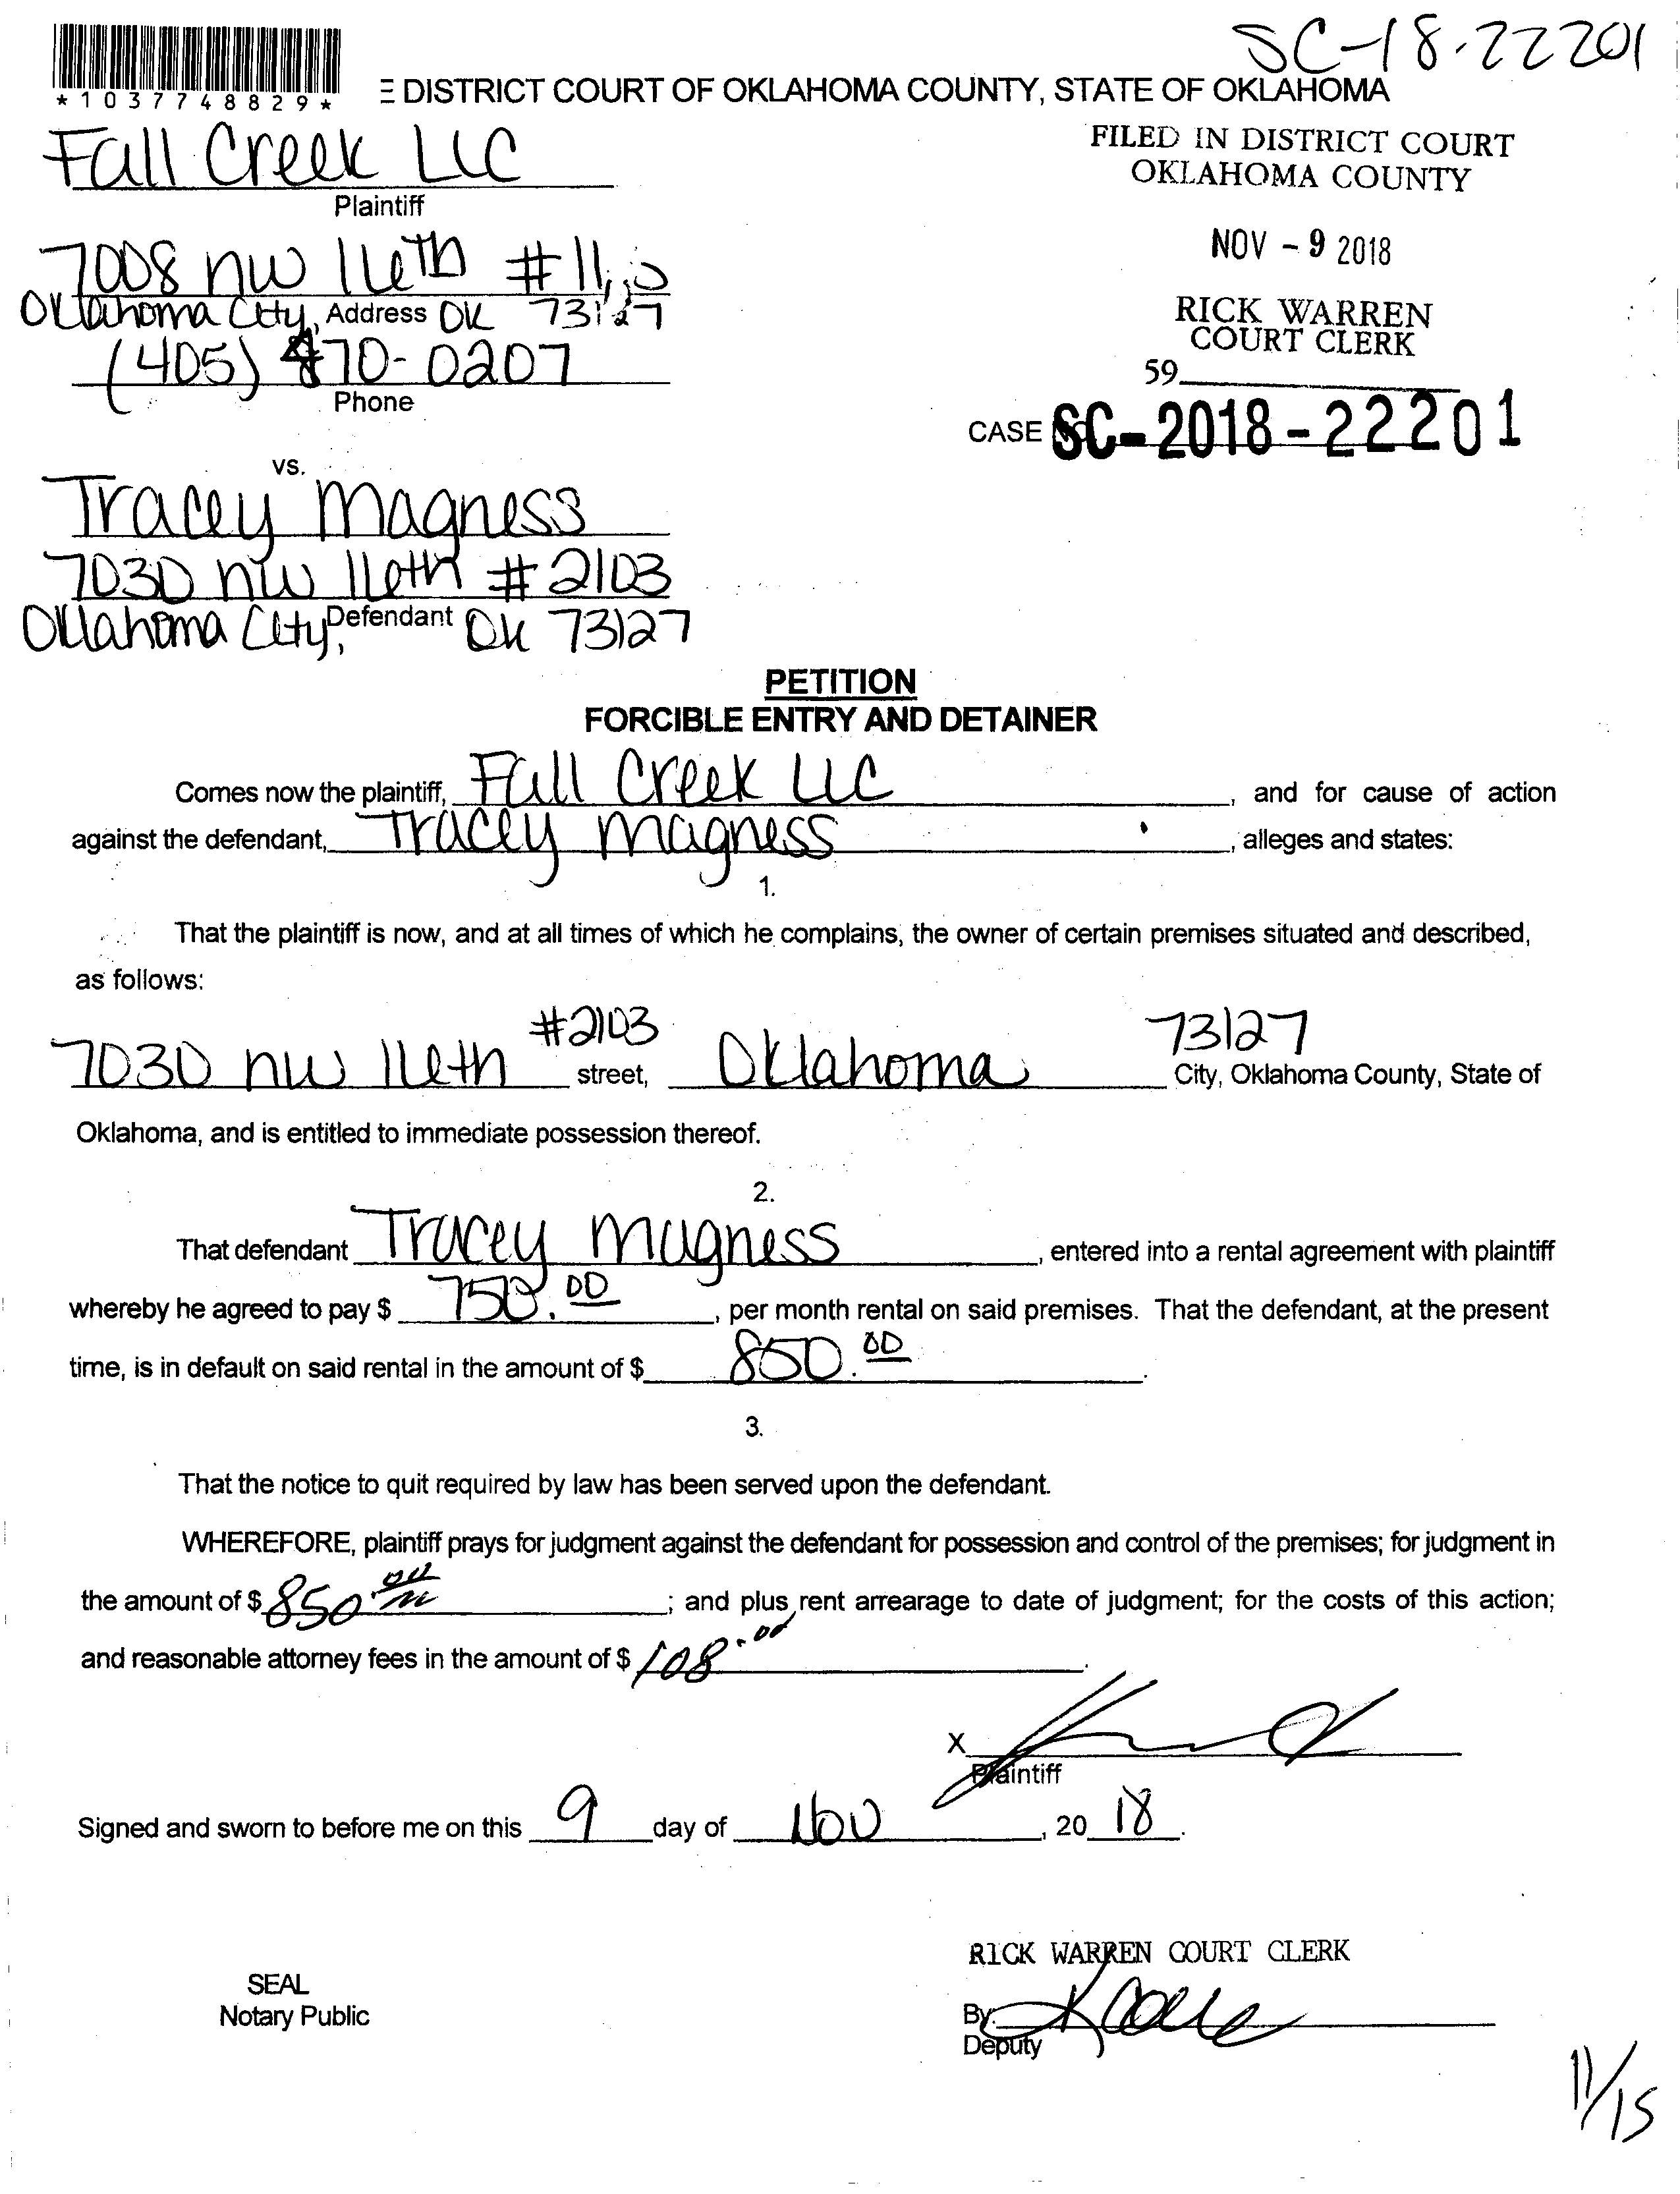 SC-18-22201
*1037748829*
E DISTRICT COURT OF OKLAHOMA COUNTY, STATE OF OKLAHOMA
Fall Creek LLC
Plaintiff
FILED IN DISTRICT COURT
OKLAHOMA COUNTY
7008 nw 16th
NOV - 9 2018
Oklahoma City, Address OK 73127
RICK WARREN
COURT CLERK
(405) 470-0207
Phone
59
CASE SC-2018-22201
vs.
Tracey Magness
7030 nw 16th #2103
Defendant
Oklahoma City, Ok 73127
PETITION
FORCIBLE ENTRY AND DETAINER
Comes now the plaintiff, Fall Creek LLC, and for cause of action
against the defendant, Tracey Magness, alleges and states:
1.
That the plaintiff is now, and at all times of which he complains, the owner of certain premises situated and described,
as follows:
7030 nw 16th #2103 street, Oklahoma 73127 City, Oklahoma County, State of
Oklahoma, and is entitled to immediate possession thereof.
2.
That defendant Tracey Magness, entered into a rental agreement with plaintiff
whereby he agreed to pay $ 750.00, per month rental on said premises. That the defendant, at the present
time, is in default on said rental in the amount of $ 850.00.
3.
That the notice to quit required by law has been served upon the defendant.
WHEREFORE, plaintiff prays for judgment against the defendant for possession and control of the premises; for judgment in
the amount of $ 850.00; and plus rent arrearage to date of judgment; for the costs of this action;
and reasonable attorney fees in the amount of $ 108.00.
X
Plaintiff
Signed and sworn to before me on this 9 day of Nov, 20 18.
RICK WARREN COURT CLERK
SEAL
Notary Public
By:
Deputy
11/15